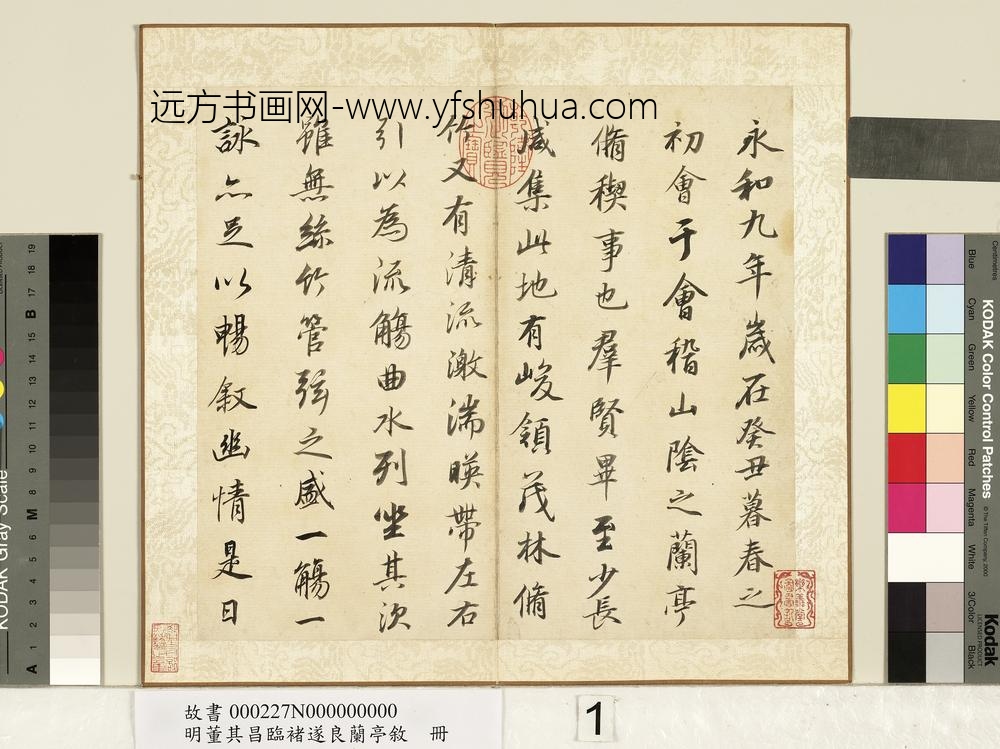 远方书画网-www.yfshuhua.com
永和九年歲在癸丑暮春之
初會于會稽山陰之蘭亭
脩稧事也羣賢畢至少長
咸集此地有峻領茂林脩
竹又有清流激湍暎帶左右
引以為流觴曲水列坐其次
雖無絲竹管弦之盛一觴一
詠亦足以暢叙幽情是日
故書 000227N000000000
明董其昌臨褚遂良蘭亭敘 冊
1
KODAK Gray Scale
A 1 2 3 4 5 6 M 8 9 10 11 12 13 14 15 B 17 18 19
KODAK Color Control Patches
© The Tiffen Company, 2000
Kodak
LICENSED PRODUCT
Centimetres
Blue
Cyan
Green
Yellow
Red
Magenta
White
3/Color
Black